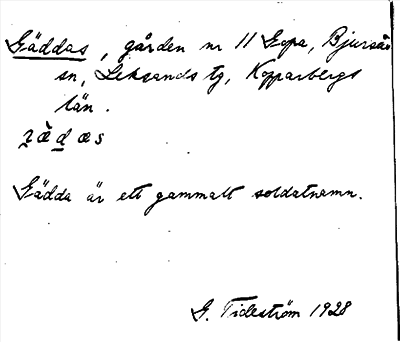 Gäddas, gården nr 11 Gopa, Bjursås
sn, Leksands tg, Kopparbergs
län.
Gädda är ett gammalt soldatnamn.
G. Tideström 1928